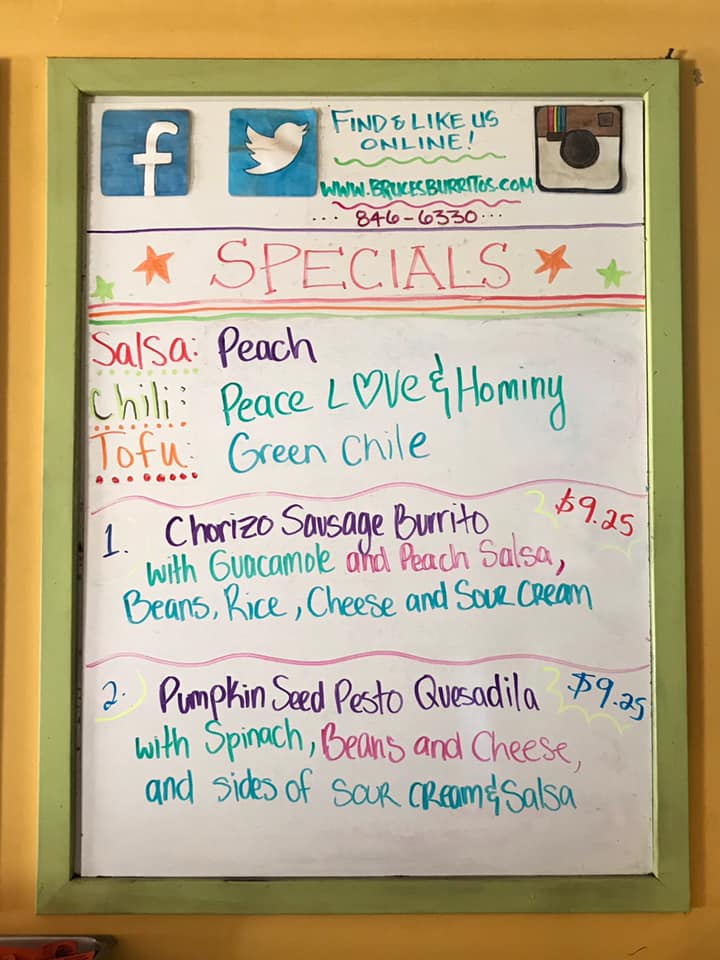 f
FIND & LIKE US
ONLINE!
WWW.BRUCESBURRITOS.COM
... 846-6330...
SPECIALS
Salsa: Peach
Chili: Peace LOVE & Hominy
Tofu: Green Chile
1. Chorizo Sausage Burrito $9.25
with Guacamole and Peach Salsa,
Beans, Rice, Cheese and Sour Cream
2. Pumpkin Seed Pesto Quesadila $9.25
with Spinach, Beans and Cheese,
and sides of Sour Cream & Salsa